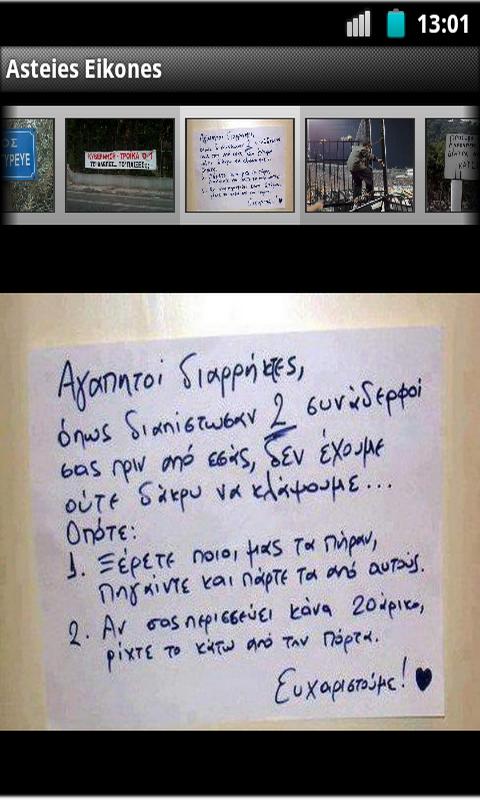 13:01
Asteies Eikones
ΟΣ
ΥΡΕΥΕ
ΚΥΒΕΡΝΗΣΗ - ΤΡΟΙΚΑ
Αγαπητοί διαρρήκτες,
όπως διαπίστωσαν 2 συνάδερφοι
σας πριν από εσάς, δεν έχουμε
ούτε δάκρυ να κλάψουμε...
Οπότε:
1. Ξέρετε ποιοι μας τα πήραν,
πηγαίντε και πάρτε τα από αυτούς.
2. Αν σας περισσεύει κάνα 20άρικο,
ρίχτε το κάτω από την πόρτα.
Ευχαριστούμε! ♥